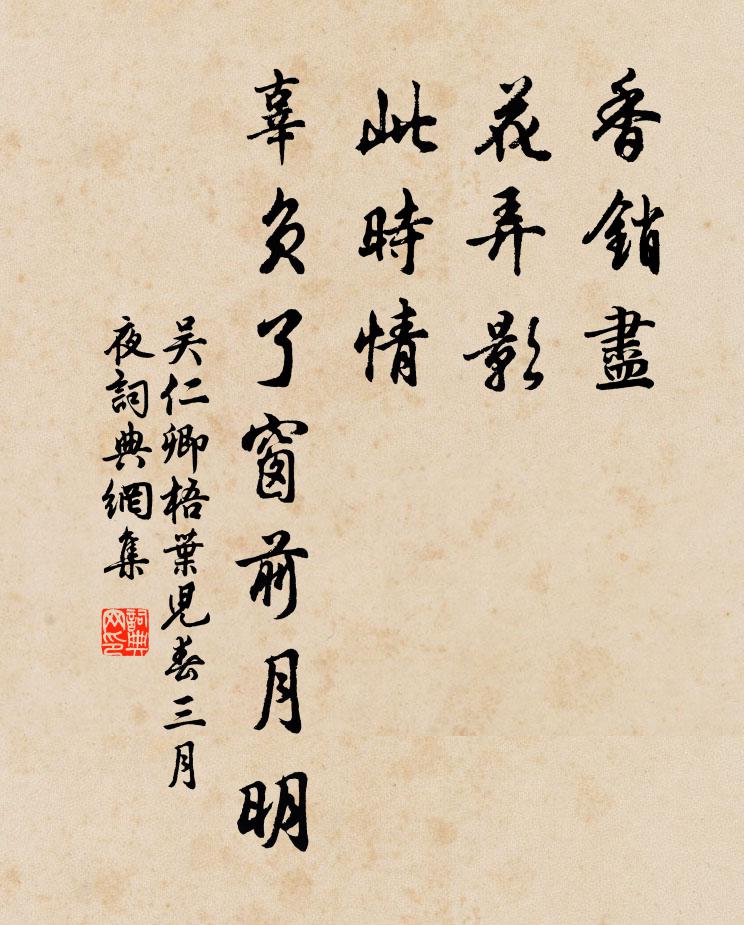 香銷盡
花弄影
此時情
辜負了窗前月明
吴仁卿梧葉兒春三月
夜詞典網集
詞典網印